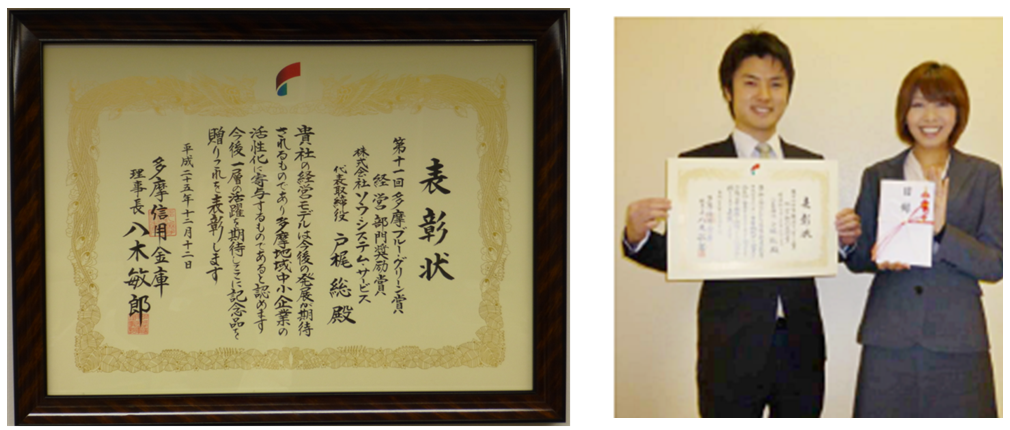 表彰状
第十一回 多摩ブルー・グリーン賞
経営部門奨励賞
株式会社ソウ・システム・サービス
代表取締役 戸梶 総 殿
貴社の経営モデルは今後の発展が期待
されるものであり多摩地域中小企業の
活性化に寄与するものであると認めます
今後一層の活躍を期待しここに記念品を
贈りこれを表彰します
平成二十五年十二月十二日
多摩信用金庫
理事長 八木敏郎
表彰状
目録